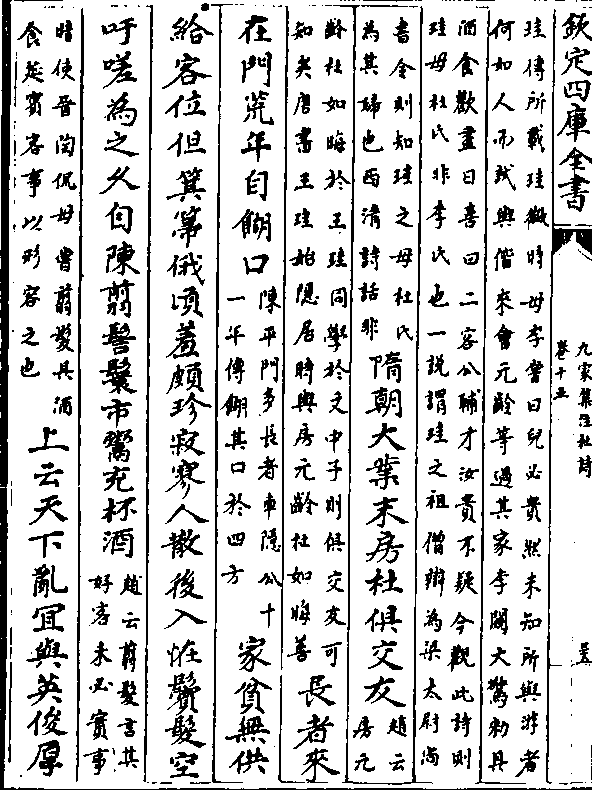 欽定四庫全書
九家集注杜詩
卷十五
珪傳所載珪微時母李嘗曰兒必貴然未知所與游者
何如人而試與偕來會元齡等過其家李闚大驚勑具
酒食歡盡日喜曰二客公輔才汝貴不疑今觀此詩則
珪母杜氏非李氏也一說謂珪之祖僧辯為梁太尉尚
書令則知珪之母杜氏
為其婦也西清詩話非
隋朝大業末房杜俱交友
趙云
房元
齡杜如晦於王珪同學於文中子則俱交友可
知矣唐書王珪始隱居時與房元齡杜如晦善
長者來
在門荒年自餬口
陳平門多長者車隱公十
一年傳餬其口於四方
家貧無供
給客位但箕帚俄頃羞頗珍寂寥人散後入怪鬢髮空
吁嗟為之久自陳翦髻鬟市鬻充杯酒
趙云翦髮言其
好客未必實事
暗使晉陶侃母曾翦髮具酒
食延賓客事以形容之也
上云天下亂宜與英俊厚